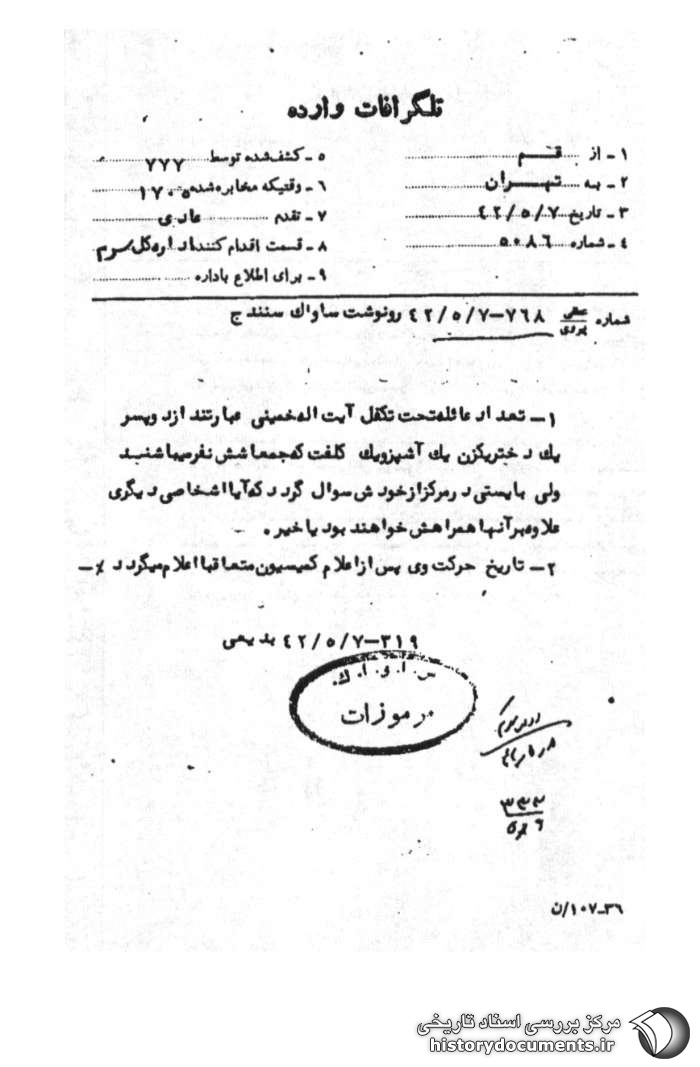 تلگرافات وارده
۱ـ از قم
۲ـ به تهران
۳ـ تاریخ ۴۲/۵/۷
۴ـ شماره ۵۰۸۶
۵ـ کشف‌شده توسط ۷۷۷
۶ـ وقتیکه مخابره‌شده ۱۷۰۵
۷ـ تقدم عادی
۸ـ قسمت اقدام کننده اداره کل سوم
۹ـ برای اطلاع باداره
شماره ۷۶۸–۴۲/۵/۷ رونوشت ساواك سنندج
۱ــ تعداد عائله تحت تکفل آیت اله خمینی عبارتند از دو پسر
یك دختر یکزن یك آشپز و یك کلفت که جمعا شش نفر میباشند
ولی بایستی در مرکز از خودش سوال گردد که آیا اشخاصی دیگری
علاوه بر آنها همراهش خواهند بود یا خیر .
۲ــ تاریخ حرکت وی پس از اعلام کمیسیون متعاقبا اعلام میگردد ٪ــ
۳۱۹–۴۲/۵/۷ بدیعی
س . ا . و . ا . ك .
رموزات
۳۶ـ۱۰۷/ن
مرکز بررسی اسناد تاریخی
historydocuments.ir